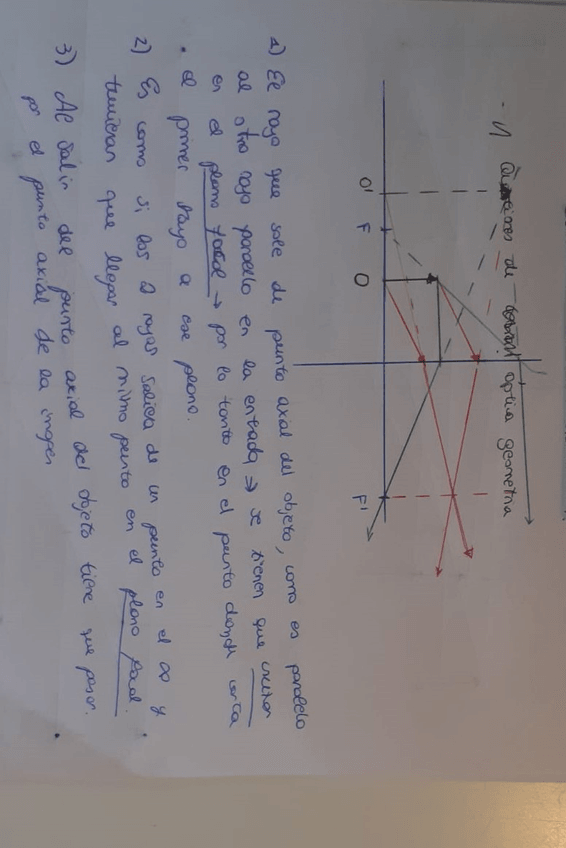 Cuestiones de óptica geometria
O' F O F'
1) El rayo que sale de punto axial del objeto, como es paralelo
al otro rayo paralelo en la entrada => se tienen que cruzar
en el plano focal → por lo tanto en el punto donde corta
el primer rayo a ese plano.
2) Es como si los 2 rayos salieran de un punto en el ∞ y
tuvieran que llegar al mismo punto en el plano focal.
3) Al salir del punto axial del objeto tiene que pasar
por el punto axial de la imagen